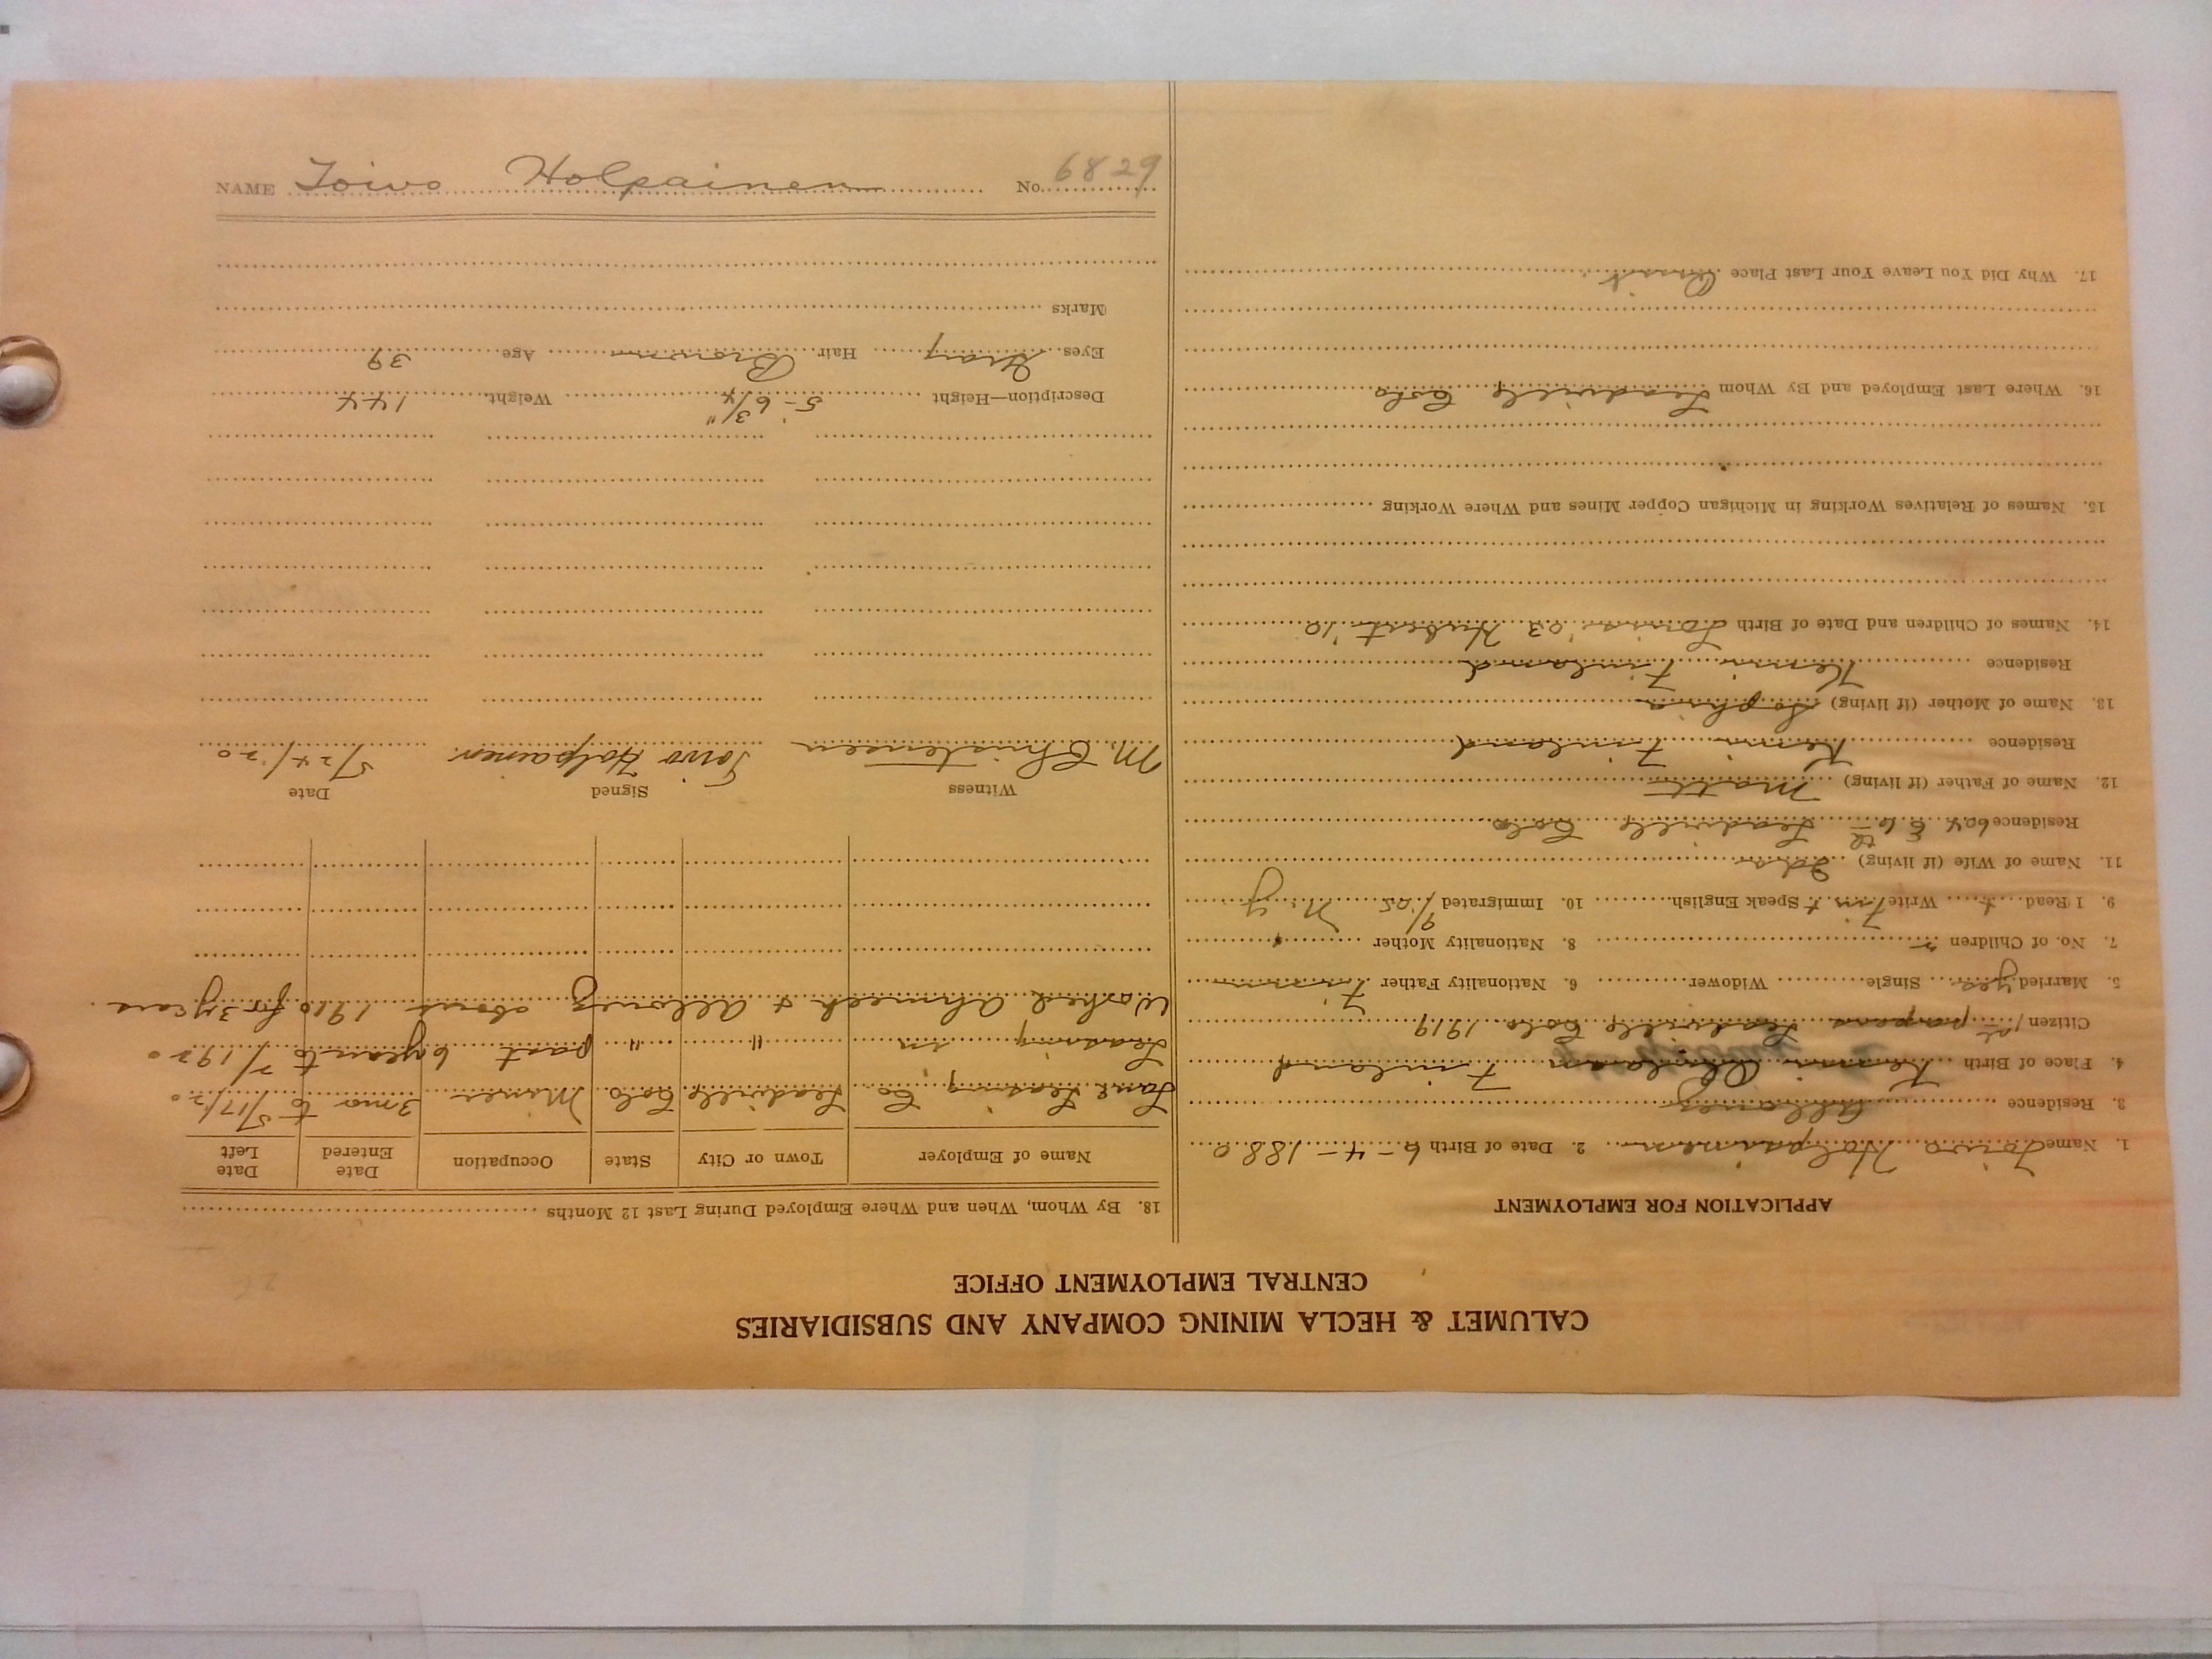 CALUMET & HECLA MINING COMPANY AND SUBSIDIARIES
CENTRAL EMPLOYMENT OFFICE
APPLICATION FOR EMPLOYMENT
1. Name Toivo Holpainen 2. Date of Birth 6-4-1880
3. Residence Allouez
4. Place of Birth Kemi Finland
Citizen 1st papers Leadville Colo. 1919
5. Married yes Single Widower 6. Nationality Father Finn
7. No. of Children 2 8. Nationality Mother "
9. I Read + Write Finn + Speak English 10. Immigrated 9/05 N.Y
11. Name of Wife (if living) Ida
Residence 604 E 6th Leadville Colo
12. Name of Father (if living) Matt
Residence Kemi Finland
13. Name of Mother (if living) Sophia
Residence Kemi Finland
14. Names of Children and Date of Birth '03 Hubert '10
15. Names of Relatives Working in Michigan Copper Mines and Where Working
16. Where Last Employed and By Whom Leadville Colo
17. Why Did You Leave Your Last Place Quit
18. By Whom, When and Where Employed During Last 12 Months
Name of Employer Town or City State Occupation Date Entered Date Left
Leasing Co Leadville Colo Miner 3 mo to 5/17/20
Leasing in " " past 6 years to 1920
Worked Ahmeek & Allouez about 1910 for 3 years
Witness Signed Date
M. Christensen Toivo Holpainen 5/24/20
Description—Height 5-6 3/4" Weight 144
Eyes Gray Hair Brown Age 39
Marks
NAME Toivo Holpainen No. 6829